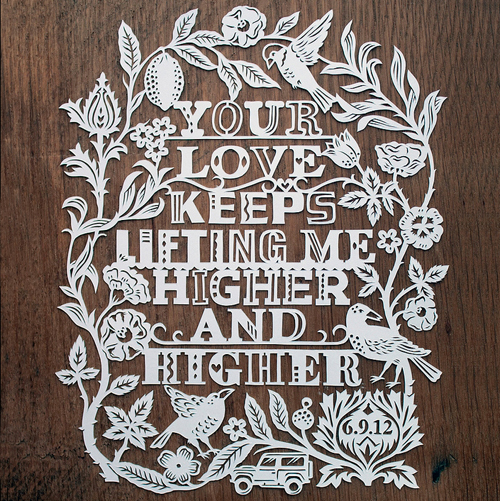 YOUR
LOVE
KEEPS
LIFTING ME
HIGHER
AND
HIGHER
6.9.12